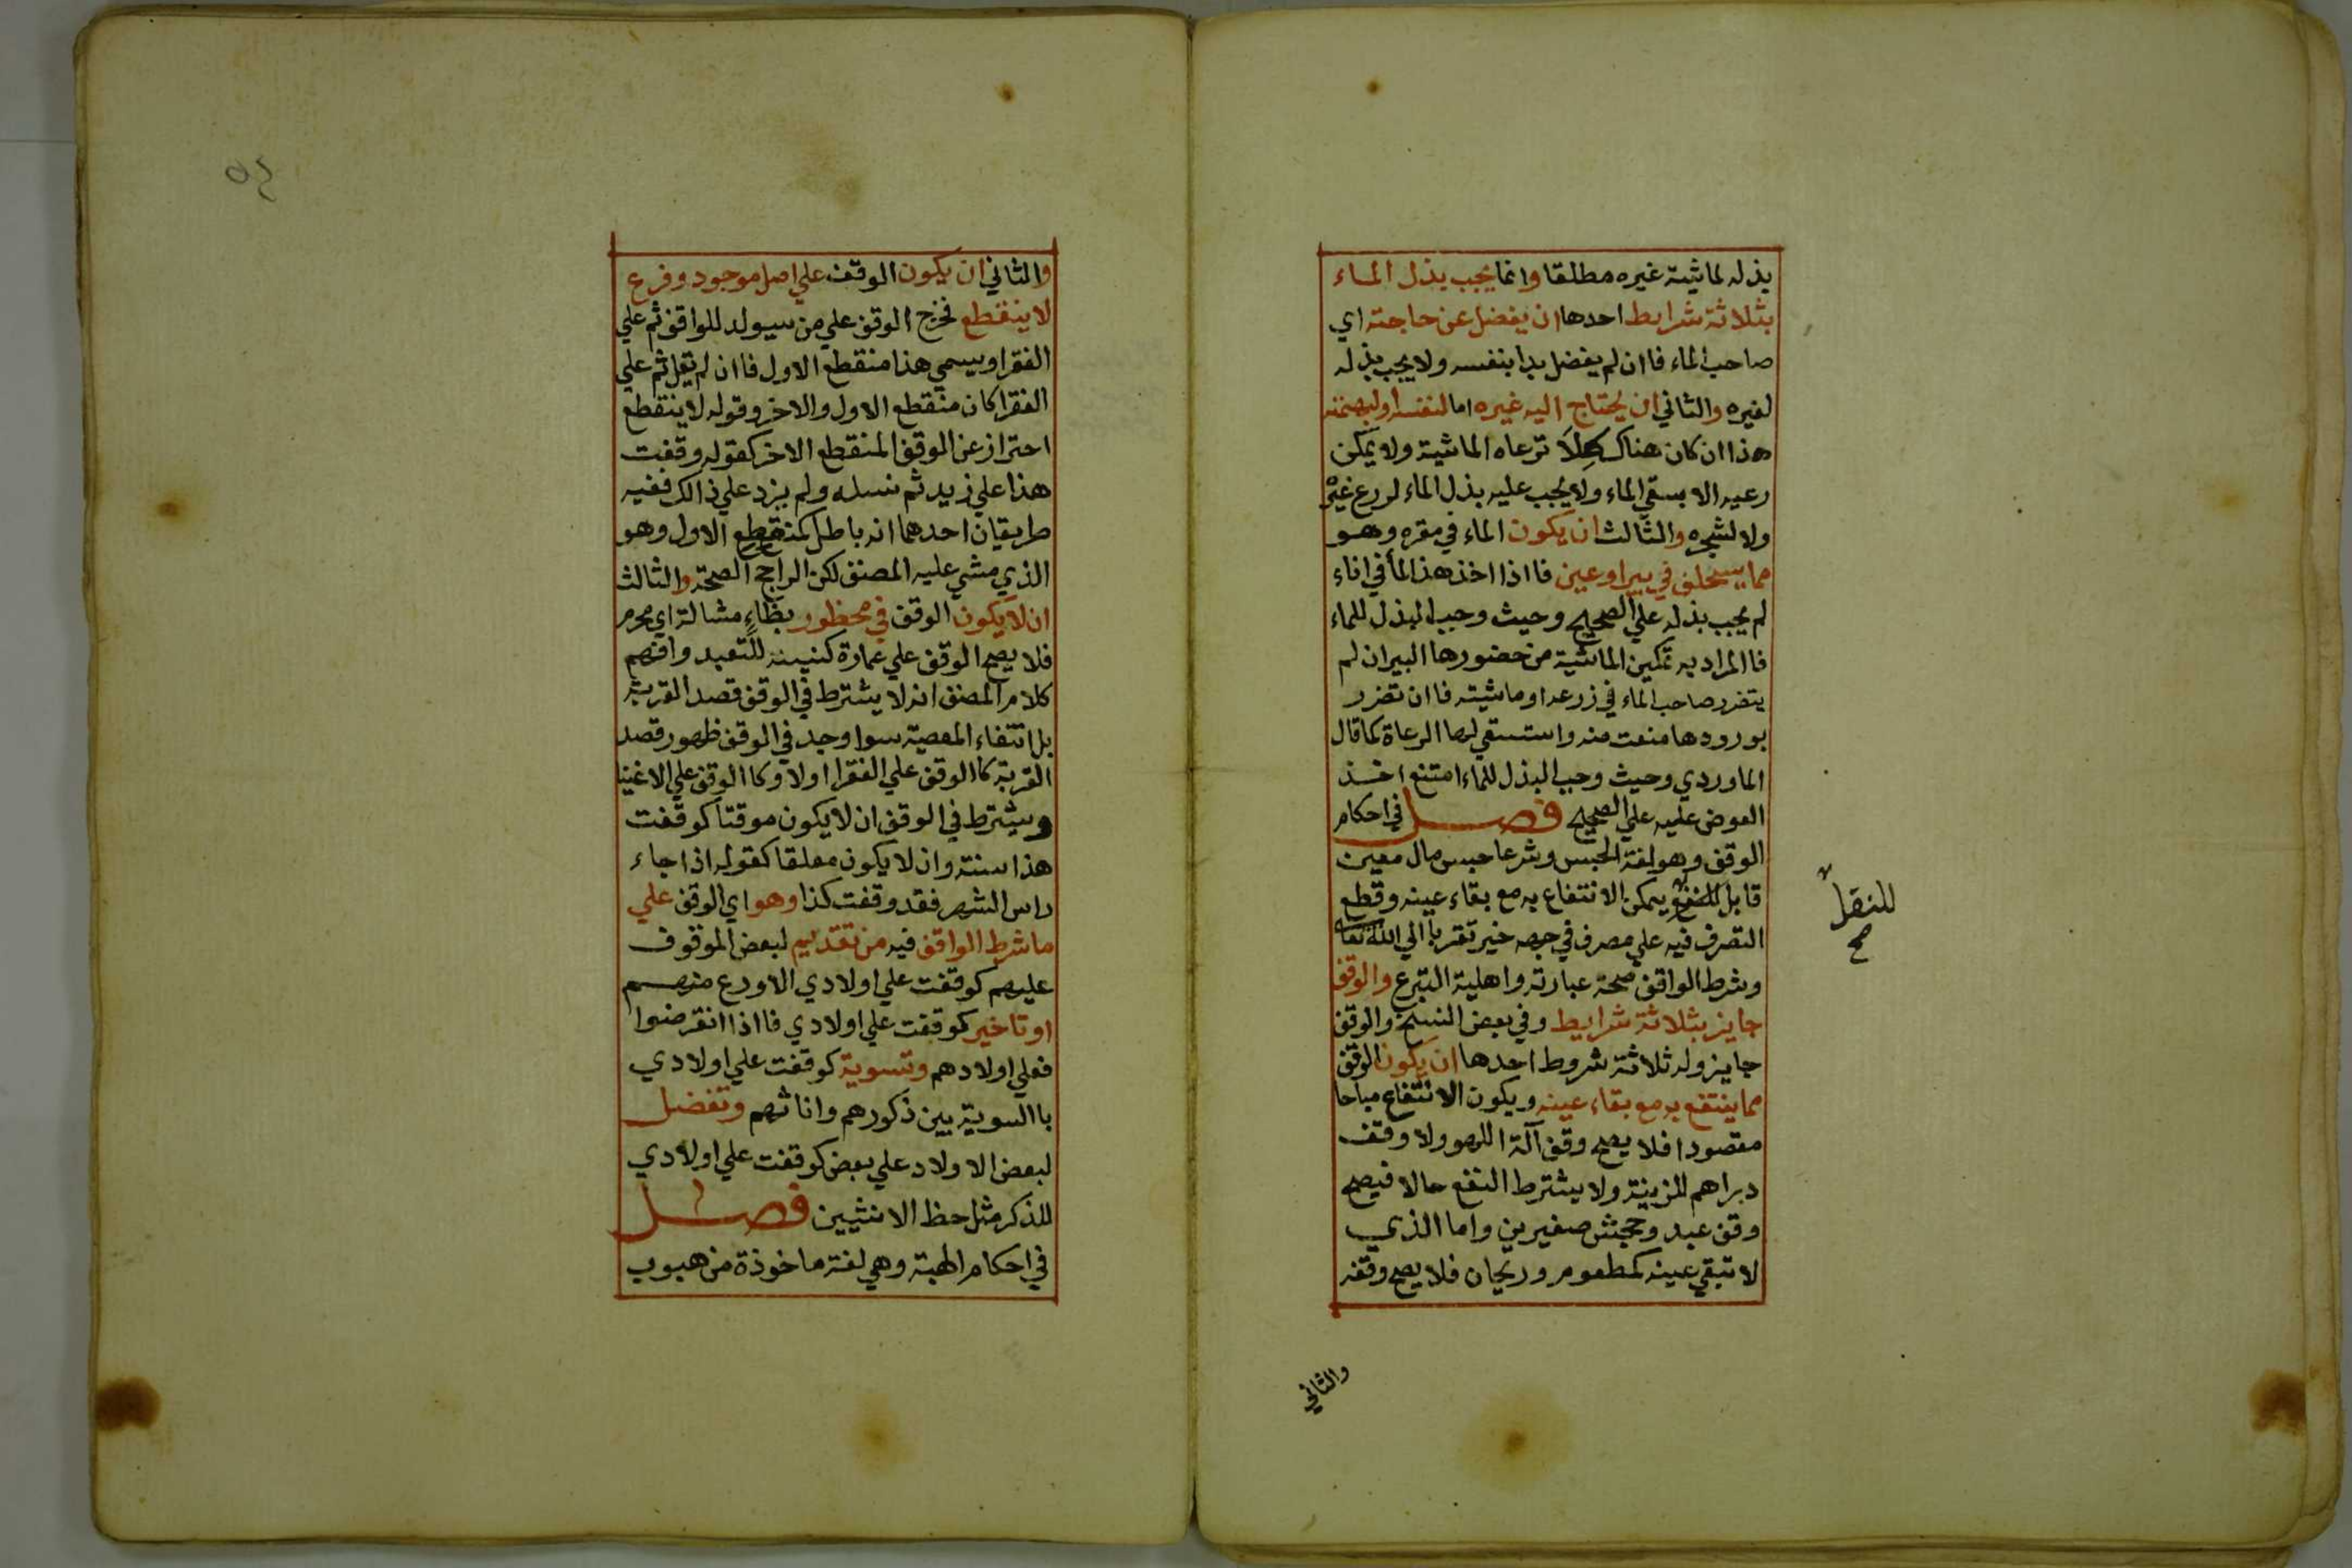 بذله لماشية غيره مطلقا وانما يجب بذل الماء
بثلاثة شرايط احدها ان يفضل عن حاجته اي
صاحب الماء فاان لم يفضل بدا بنفسه ولا يجب بذله
لغيره والثاني ان يحتاج اليه غيره اما لنفسه او لبهيمته
هذا ان كان هناك كلاَ ترعاه الماشية ولا يمكن
رعيه الا بسقي الماء ولا يجب عليه بذل الماء لزرع غيره
ولا لشجره والثالث ان يكون الماء في مقره وهو
مما يستخلف في بير او عين فااذا اخذ هذ الماء في اناء
لم يجب بذله علي الصحيح وحيث وجب البذل للماء
فاالمراد به تمكين الماشية من حضورها البير ان لم
يتضرر صاحب الماء في زرعه او ماشيته فاان تضرر
بورودها منعت منه واستسقي لها الرعاة كما قال
الماوردي وحيث وجب البذل للماء امتنع اخذ
العوض عليه علي الصحيح فصل في احكام
الوقف وهو لغة الحبس وشرعا حبس مال معين
قابل يمكن الانتفاع به مع بقاء عينه وقطع
للنقل
صح
التصرف فيه علي مصرف في جهه خير تقربا الي الله تعالى
وشرط الواقف صحة عبارته واهلية التبرع والوقف
جايز بثلاثة شرايط وفي بعض النسخ والوقف
جايز وله ثلاثة شروط احدها ان يكون الوقف
مما ينتفع به مع بقاء عينه ويكون الانتفاع مباحا
مقصودا فلا يصح وقف آلة اللهو ولا وقف
دراهم للزينة ولا يشترط النفع حالا فيصح
وقف عبد وجحش صغيرين واما الذي
لا تبقي عينه كمطعوم وريحان فلا يصح وقفه
والثاني
والثاني ان يكون الوقف علي اصل موجود وفرع
لا ينقطع فخرج الوقف علي من سيولد للواقف ثم علي
الفقرا ويسمي هذا منقطع الاول فاان لم يقل ثم علي
الفقرا كان منقطع الاول والاخر وقوله لا ينقطع
احتراز عن الوقف المنقطع الاخر كقوله وقفت
هذا علي زيد ثم نسله ولم يزد علي ذالك ففيه
طريقان احدهما انه باطل كمنقطع الاول وهو
الذي مشي عليه المصنف لكن الراجح الصحة والثالث
ان لا يكون الوقف في محظور بظاءٍ مشالة اي محرم
فلا يصح الوقف علي عمارة كنيسة للتعبد وافهم
كلام المصنف انه لا يشترط في الوقف قصد القربة
بل انتفاء المعصية سوا وجد في الوقف ظهور قصد
القربة كاالوقف علي الفقرا اولا وكاالوقف علي الاغنيا
ويشترط في الوقف ان لا يكون موقتا كوقفت
هذا سنة وان لا يكون معلقا كقوله اذا جاء
راس الشهر فقد وقفت كذا وهو اي الوقف علي
ما شرط الواقف فيه من تقديم لبعض الموقوف
عليهم كوقفت علي اولادي الاورع منهم
او تاخير كوقفت علي اولادي فااذا انقرضوا
فعلي اولادهم وتسوية كوقفت علي اولادي
باالسوية بين ذكورهم واناثهم وتفضل
لبعض الاولاد علي بعض كوقفت علي اولادي
للذكر مثل حظ الانثيين فصل
في احكام الهبة وهي لغة ماخوذة من هبوب